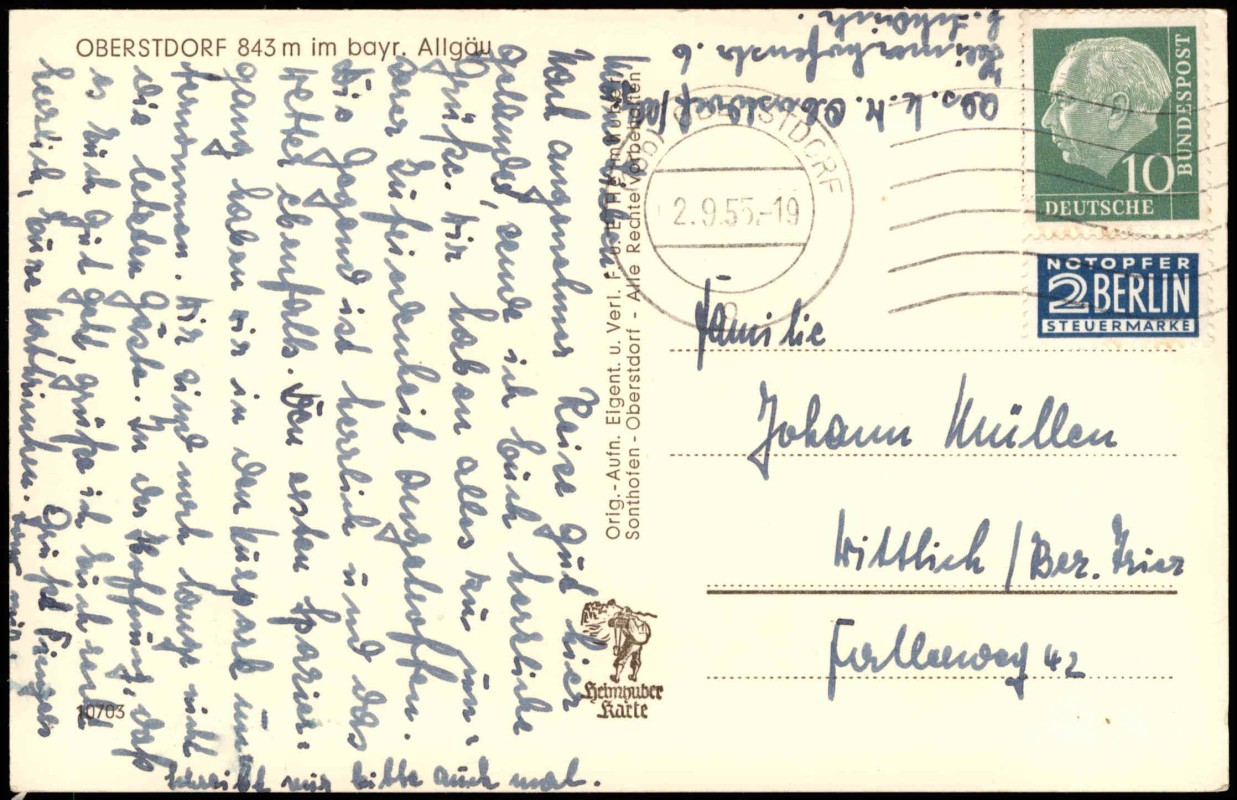 OBERSTDORF 843 m im bayr. Allgäu
Ihr Lieben.
Nach angenehmer Reise gut hier
gelandet, sende ich Euch herzliche
Grüße. Wir haben alles zu un-
serer Zufriedenheit angetroffen.
Die Gegend ist herrlich und das
Wetter ebenfalls. Den ersten Spazier-
gang haben wir in den Kurpark un-
ternommen. Wir sind noch lange nicht
die letzten Gäste. In der Hoffnung, daß
es Euch gut geht, grüße ich Euch recht
herzlich, Eure Kathrinchen.
Schreibt mir bitte auch mal.
10703
Orig.-Aufn. Eigent. u. Verl. F. u. E. Heimhuber
Sonthofen - Oberstdorf - Alle Rechte vorbehalten
Heimhuber
Karte
Abs. K. M. Oberstdorf
6
OBERSTDORF
2.9.55.-19
10
DEUTSCHE
BUNDESPOST
NOTOPFER
2 BERLIN
STEUERMARKE
Familie
Johann Müllen
Wittlich / Bez. Trier
42